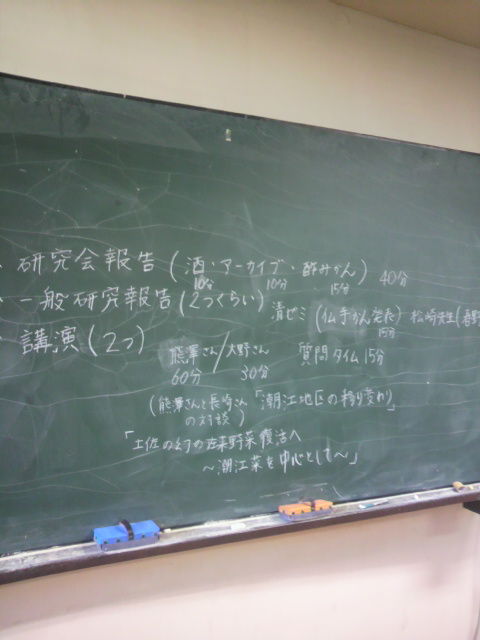 ・研究会報告(酒・アーカイブ・酢みかん) 40分
10分 10分 15分
・一般研究報告(2つくらい) 清ゼミ(仏手かん発表) 松崎先生(春野
15分
・講演(2つ)
熊澤さん/大野さん 質問タイム15分
60分 30分
(熊澤さんと長崎さん「潮江地区の移り変わり」
の対談)
「土佐の幻の在来野菜復活へ
〜潮江菜を中心として〜」